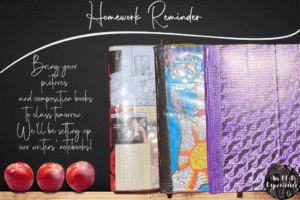 Homework Reminder
Bring your
pictures
and composition books
to class tomorrow.
We'll be setting up
our writers' notebooks!
An ELA
Experience